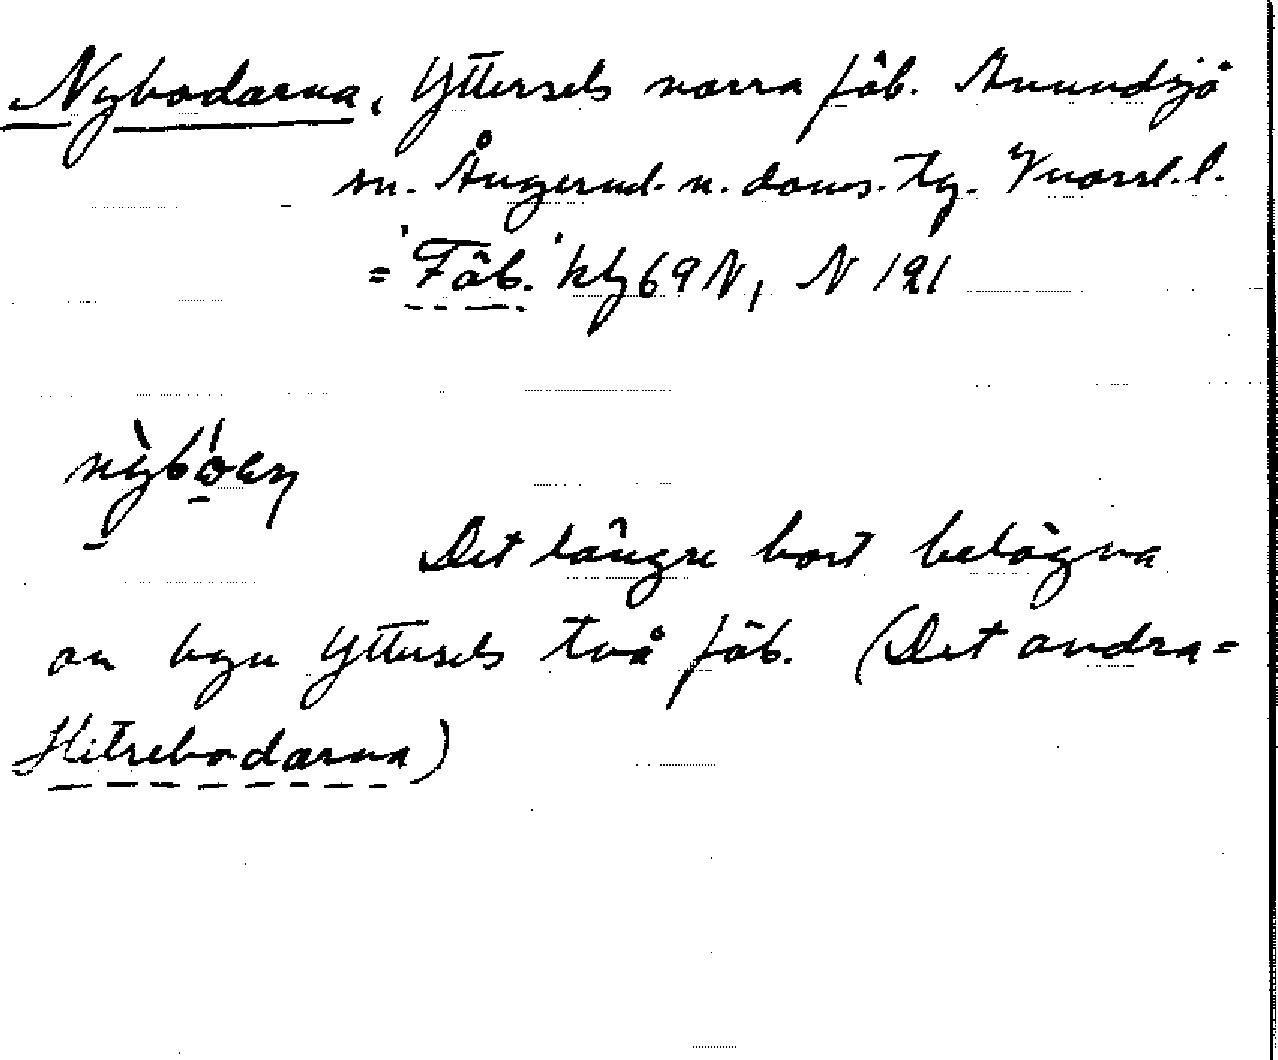 Nybodarna, Yttersels norra fäb. Anundsjö
sn. Ångerml. n. doms. tg. Vnorrl. l.
= 'Fäb.' kbl 69 N, N 121
Det längre bort belägna
av byn Yttersels två fäb. (Det andra =
Hitrebodarna)